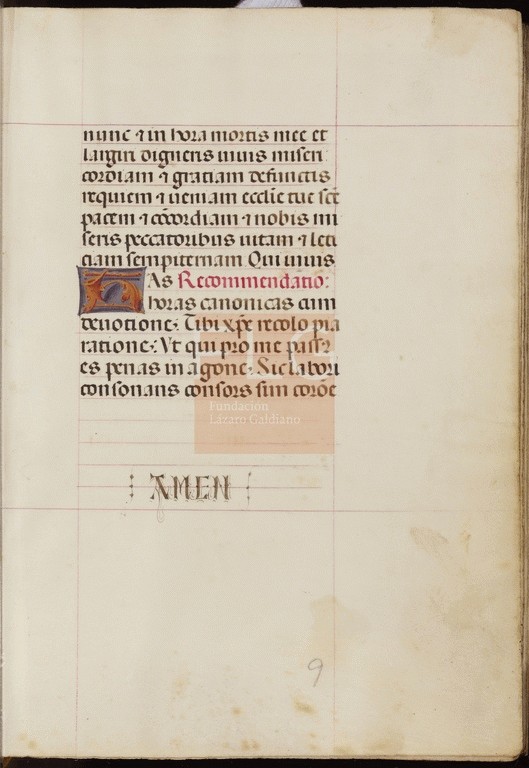 nunc ⁊ in hora mortis mee et
largiri digneris uiuis miseri
cordiam ⁊ gratiam defunctis
requiem ⁊ ueniam ecclie tue scē
pacem ⁊ cōcordiam ⁊ nobis mi
seris peccatoribus uitam ⁊ leti
ciam sempiternam Qui uiuis
HAs Recommendatio:
horas canonicas cum
deuotione: Tibi xp̄e recolo pia
ratione: Ut qui pro me passꝰ
es penas in agone: Sic labori
consonans consors sim corōe
Fundación
Lázaro Galdiano
: AMEN :
9